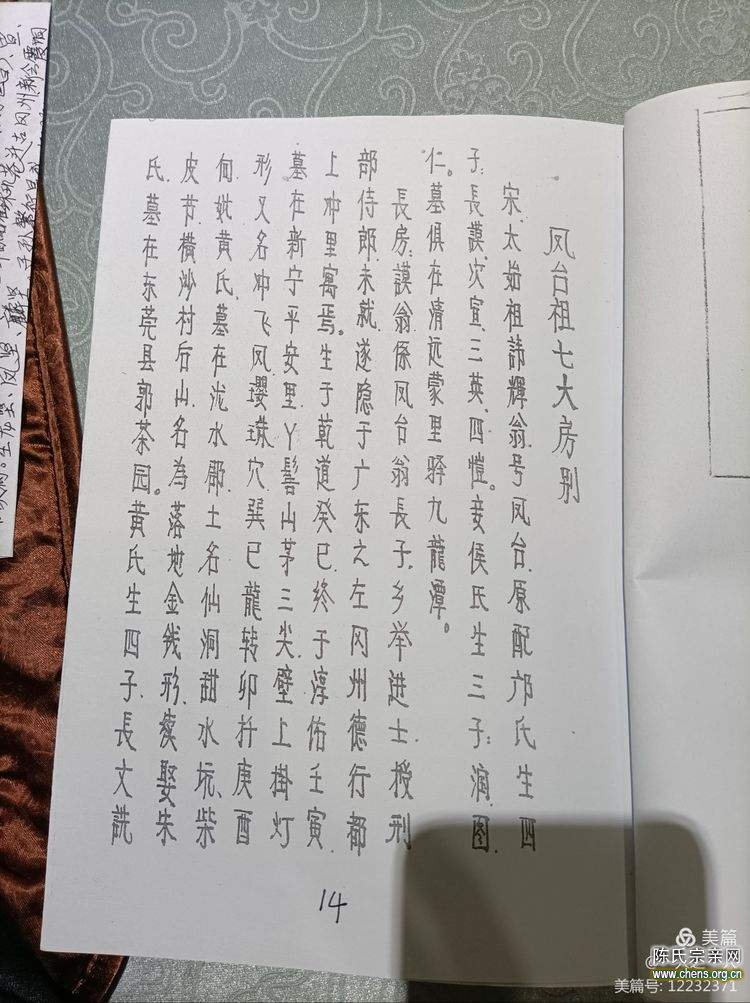 凤台祖七大房别
宋、太始祖諱輝翁号凤台、原配邝氏生四
子:長謨、次宣、三英、四愷。妾侯氏生三子:润、图、
仁。墓俱在清远蒙里驿九龍潭。
長房:謨翁係凤台翁長子、乡举进士、授刑
部侍郎、未就、遂隐于广东之左冈州德行都
上冲里寓焉。生于乾道癸巳、终于淳佑壬寅、
墓在新宁平安里、丫髻山茅三尖、壁上掛灯
形、又名冲飞凤、璎珠穴、巽巳龍转卯扦庚酉
向、妣黄氏、墓在泷水郡、土名仙洞甜水坑、柴
皮节横沙村后山、名為落地金钱形、续娶朱
氏、墓在东莞县郭茶园。黄氏生四子、長文詵
14
美篇
陈氏宗亲网
www.chens.org.cn
美篇号: 12232371